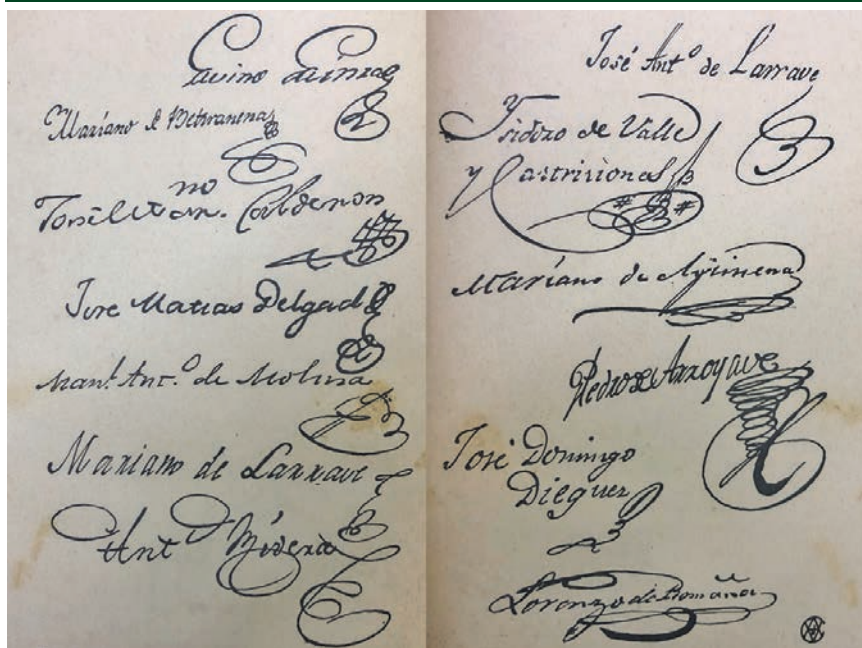 Gavino Gainza
Mariano de Beltranena
José Mar. no Calderon
Jose Matias Delgado
Man.l Ant.º de Molina
Mariano de Larrave
Ant.º Rivera
José Ant.º de Larrave
Ysidoro de Valle
y Castriciones
Mariano de Aycinena
Pedro de Arroyave
José Domingo
Dieguez
Lorenzo de Romaña